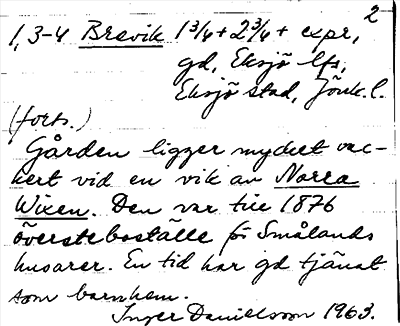 2
1,3-4 Brevik 1 3/4 + 2 3/4 + expr,
gd, Eksjö lfs,
Eksjö stad, Jönk. l.
(forts.)
Gården ligger mycket vac-
kert vid en vik av Norra
Wixen. Den var till 1876
översteboställe för Smålands
husarer. En tid har gd tjänat
som barnhem.
Inger Danielsson 1963.